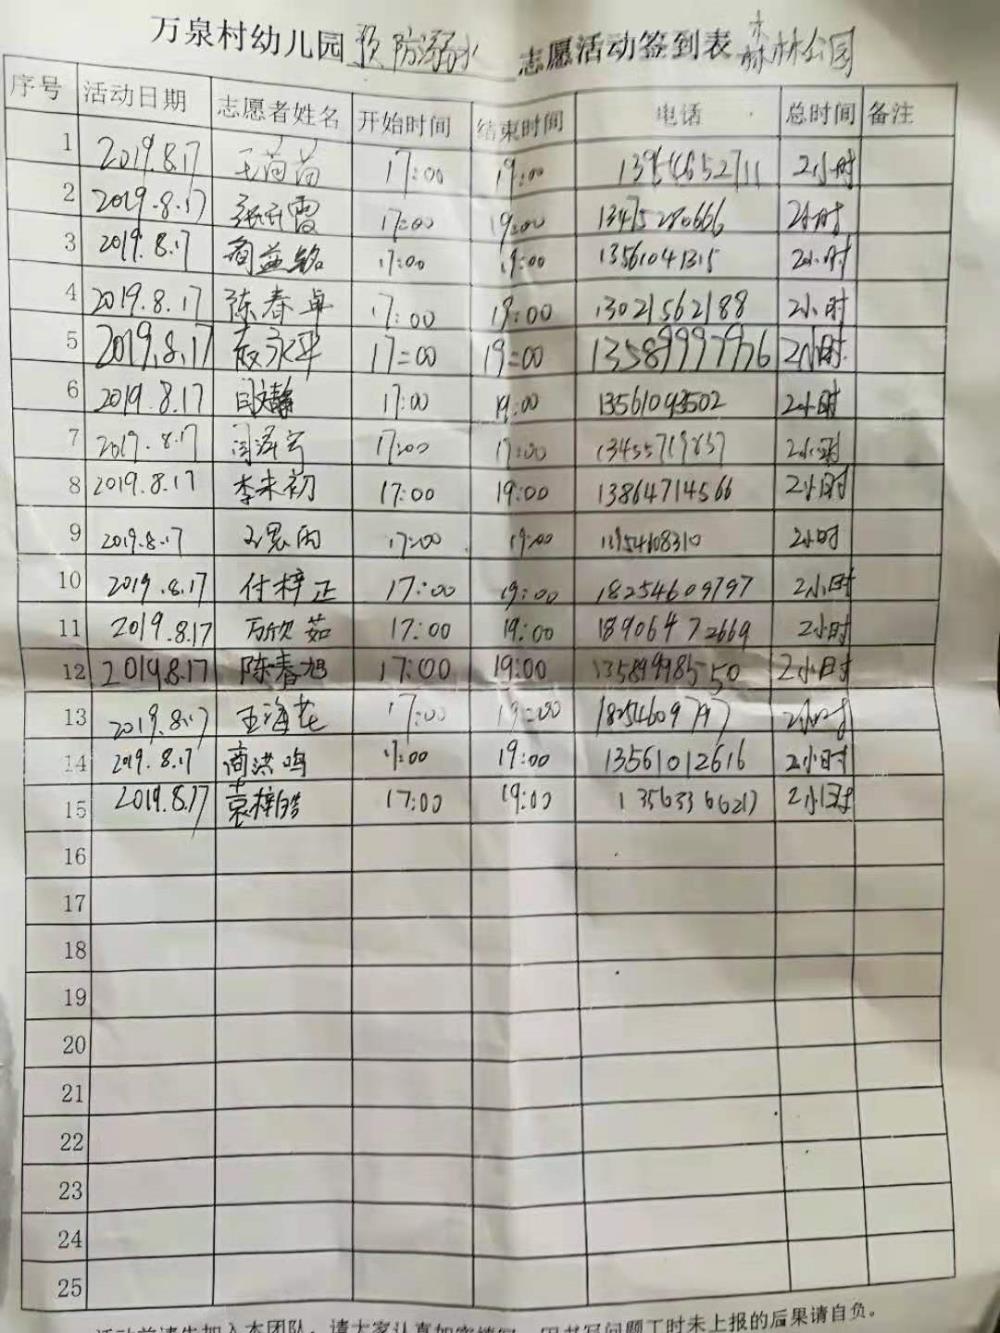 万泉村幼儿园 预防溺水 志愿活动签到表 森林公园
序号 活动日期 志愿者姓名 开始时间 结束时间 电话 总时间 备注
1 2019.8.17 王苗苗 17:00 19:00 2小时
2 2019.8.17 17:00 19:00 13475280666 2小时
3 2019.8.17 商益铭 17:00 19:00 13561041315 2小时
4 2019.8.17 陈春卓 17:00 19:00 13021562188 2小时
5 2019.8.17 17:00 19:00 2小时
6 2019.8.17 闫文静 17:00 19:00 13561043502 2小时
7 2019.8.17 17:00 17:00 2小时
8 2019.8.17 李未初 17:00 19:00 13864714566 2小时
9 2019.8.17 17:00 19:00 13954608310 2小时
10 2019.8.17 付梓正 17:00 19:00 18254609797 2小时
11 2019.8.17 万欣茹 17:00 19:00 18906472669 2小时
12 2019.8.17 陈春旭 17:00 19:00 13589998550 2小时
13 2019.8.17 王海花 17:00 19:00 18254609797 2小时
14 2019.8.17 商洪鸣 17:00 19:00 13561012616 2小时
15 2019.8.17 17:00 19:00 13563366217 2小时
16
17
18
19
20
21
22
23
24
25
活动前请先加入本团队，请大家认真如实填写，因书写问题工时未上报的后果请自负。